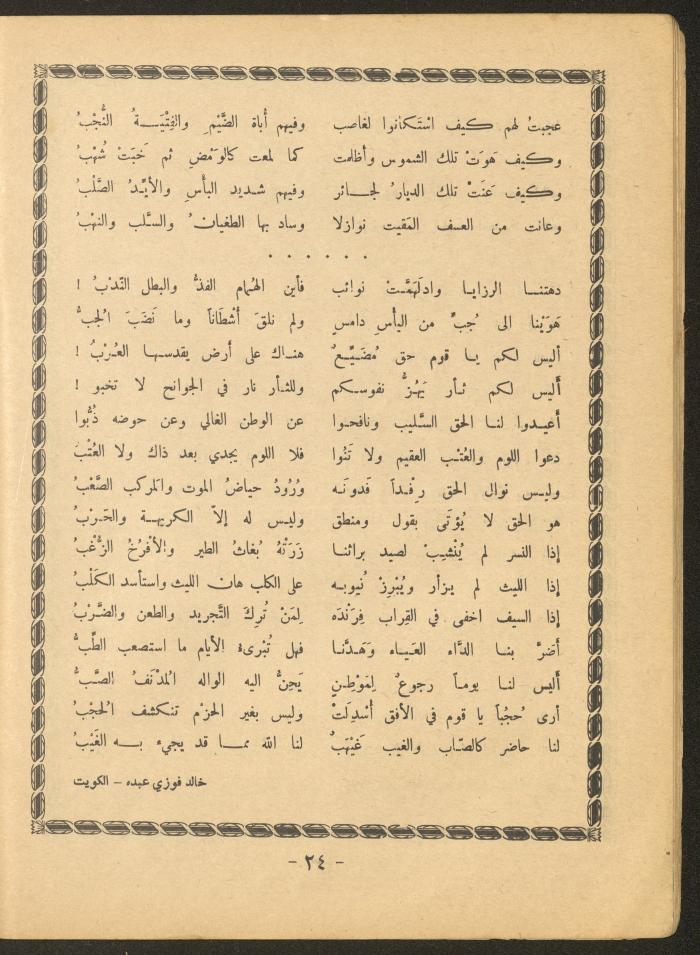 عجبتُ لهم كيف اسْتَكانوا لغاصب وفيهم أُباة الضَّيْمِ والفِتْيَةُ النُّجْبُ
وكيف هَوَتْ تلك الشموس وأظلمت كما لمعت كالوَمْضِ ثم خَبَتْ شُهْبُ
وكيف عَنَتْ تلك الديارُ لجائر وفيهم شديد البأسِ والأيِّدُ الصَّلْبُ
وعانت من العسف المَقيت نوازلا وساد بها الطغيانُ والسَّلب والنهْبُ
. . . . . .
دهتنا الرزايا وادلَهَمَّتْ نوائب فأين الهُمام الفذُّ والبطل النّدْبُ !
هَوَيْنا الى جُبٍّ من اليأسِ دامسٍ ولم نلقَ أشْطَاناً وما نَضَبَ الجبُّ
أليس لكم يا قوم حق مُضَيَّعٌ هناك على أرض يقدسها العُرْبُ !
أليس لكم ثأر يَهُزُّ نفوسكم وللثأر نار في الجوانح لا تخبو !
أعيدوا لنا الحق السَّليب ونافحوا عن الوطن الغالي وعن حوضه ذُبُّوا
دعوا اللوم والعُتْب العقيم ولا تَنُوا فلا اللوم يجدي بعد ذاك ولا العُتْبَ
وليس نوال الحق رِفْداً فدونَه وُرُودُ حياضُ الموت والمركب الصَّعْبُ
هو الحق لا يُؤتَى بقول ومنطق وليس له إلاّ الكريهة والحَرْبُ
إذا النسر لم يُنْشِبْ لصيد براثنا زَرَتْهُ بُغاثُ الطير والأفْرُخُ الزُّغْبُ
إذا الليث لم يزأر ويُبْرِزْ نُيوبه على الكلب هان الليث واستأسد الكَلْبُ
إذا السيف اخفى في القِراب فِرَنْدَه لِمَنْ تُرِكَ التَّجريد والطعن والضَّرْبُ
أضَرَّ بنا الدَّاء العَياء وَهَدَّنا فهل تُبْرىء الأيام ما استصعب الطِّبُّ
أليس لنا يوماً رجوعٌ لِمَوْطِنٍ يَحِنُّ اليه الواله المُدْنَفُ الصَّبُّ
أرى حُجُباً يا قوم في الأفق أُسْدِلَتْ وليس بغير الحزْم تنكشف الحُجْبُ
لنا حاضر كالصّاب والغيب غَيْهَبٌ لنا الله مما قد يجيء به الغَيْبُ
خالد فوزي عبده – الكويت
- ٢٤ -